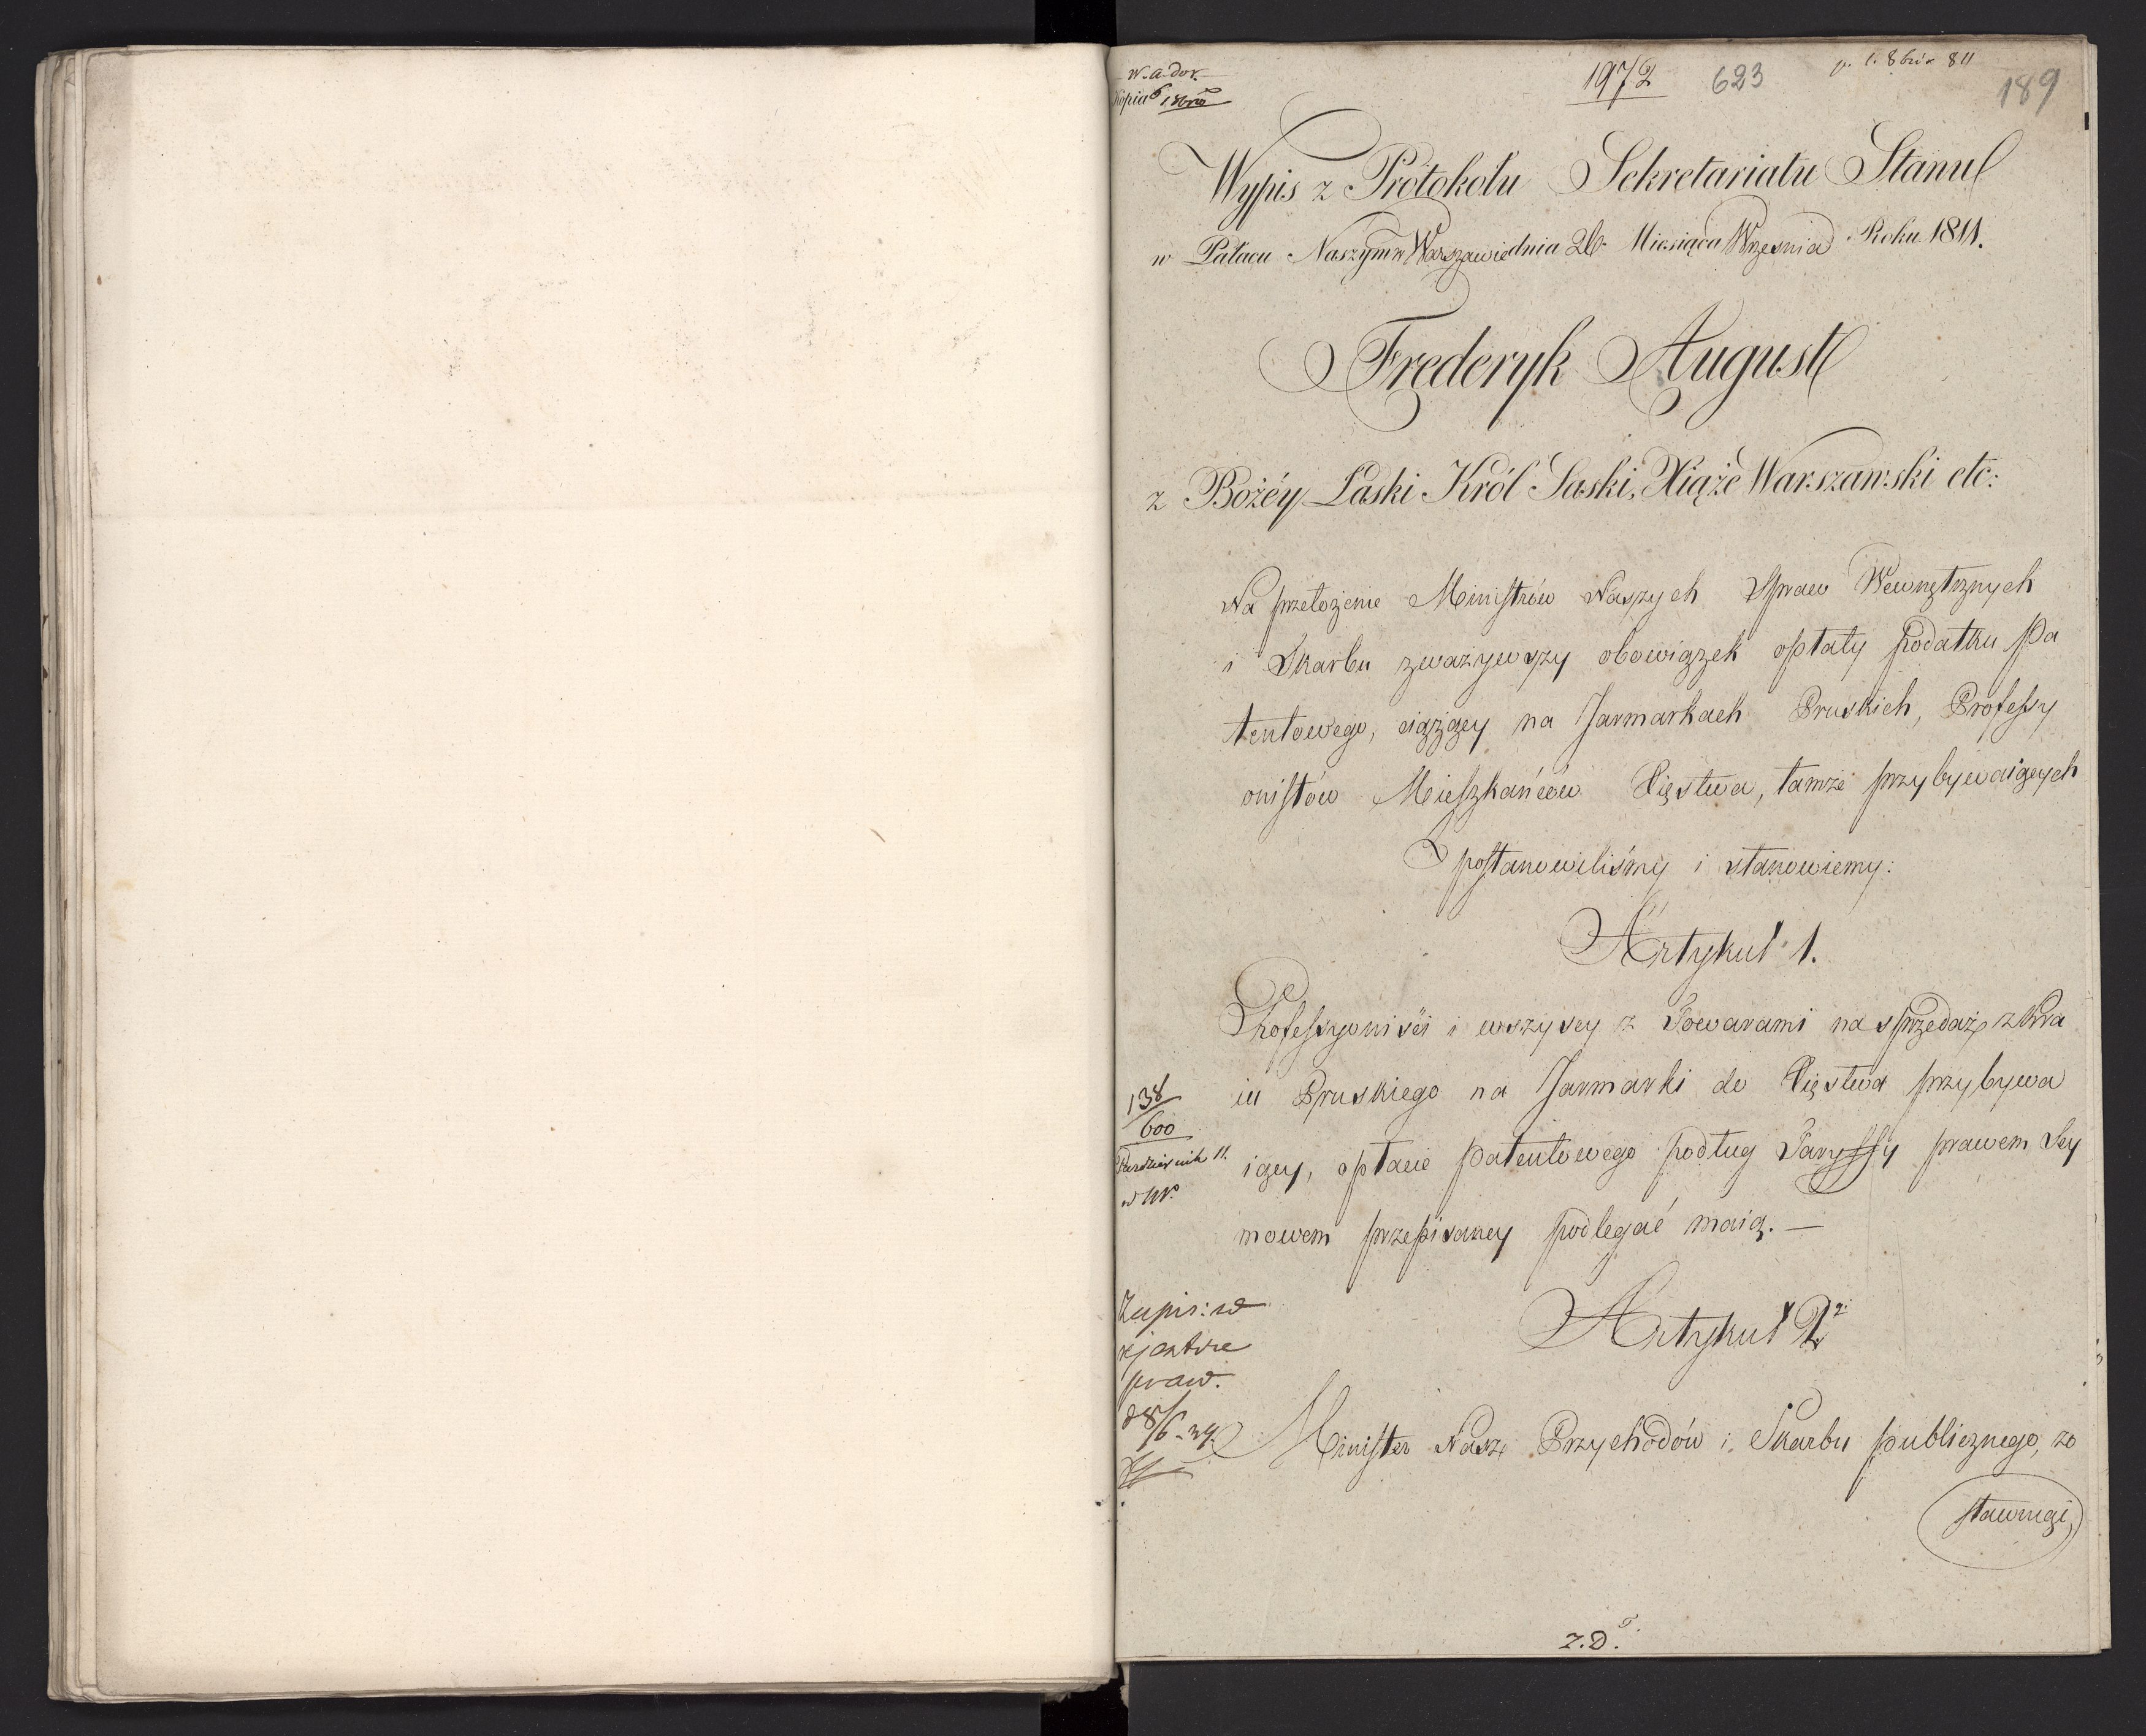 W. a. dor.
Kopia
1972 623
189
Wypis z Protokołu Sekretariatu Stanu
w Pałacu Naszym w Warszawie dnia 26. Miesiąca Wrzesnia Roku 1811.
Frederyk August
z Bożéy Łaski Król Saski, Xiąże Warszawski etc:
Na przełożenie Ministrów Naszych Spraw Wewnętrznych
i Skarbu zważywszy obowiązek opłaty podatku Pa
tentowego, ciążący na Jarmarkach Pruskich, Professy
onistów Mieszkańców Xięstwa, tamże przybywaiących
postanowiliśmy i stanowiemy:
Artykuł 1.
Professyoniści i wszyscy z Towarami na sprzedaż z Kra
iu Pruskiego na Jarmarki do Xięstwa przybywa
iący, opłacie Patentowego podług Taryffy prawem Sey
mowem przepisaney podlegać maią. —
138
600
Październik 11.
Artykuł 2
Zapis: w
rejestrze
praw.
Minister Nasz Przychodów i Skarbu publicznego, zo
stawuąi